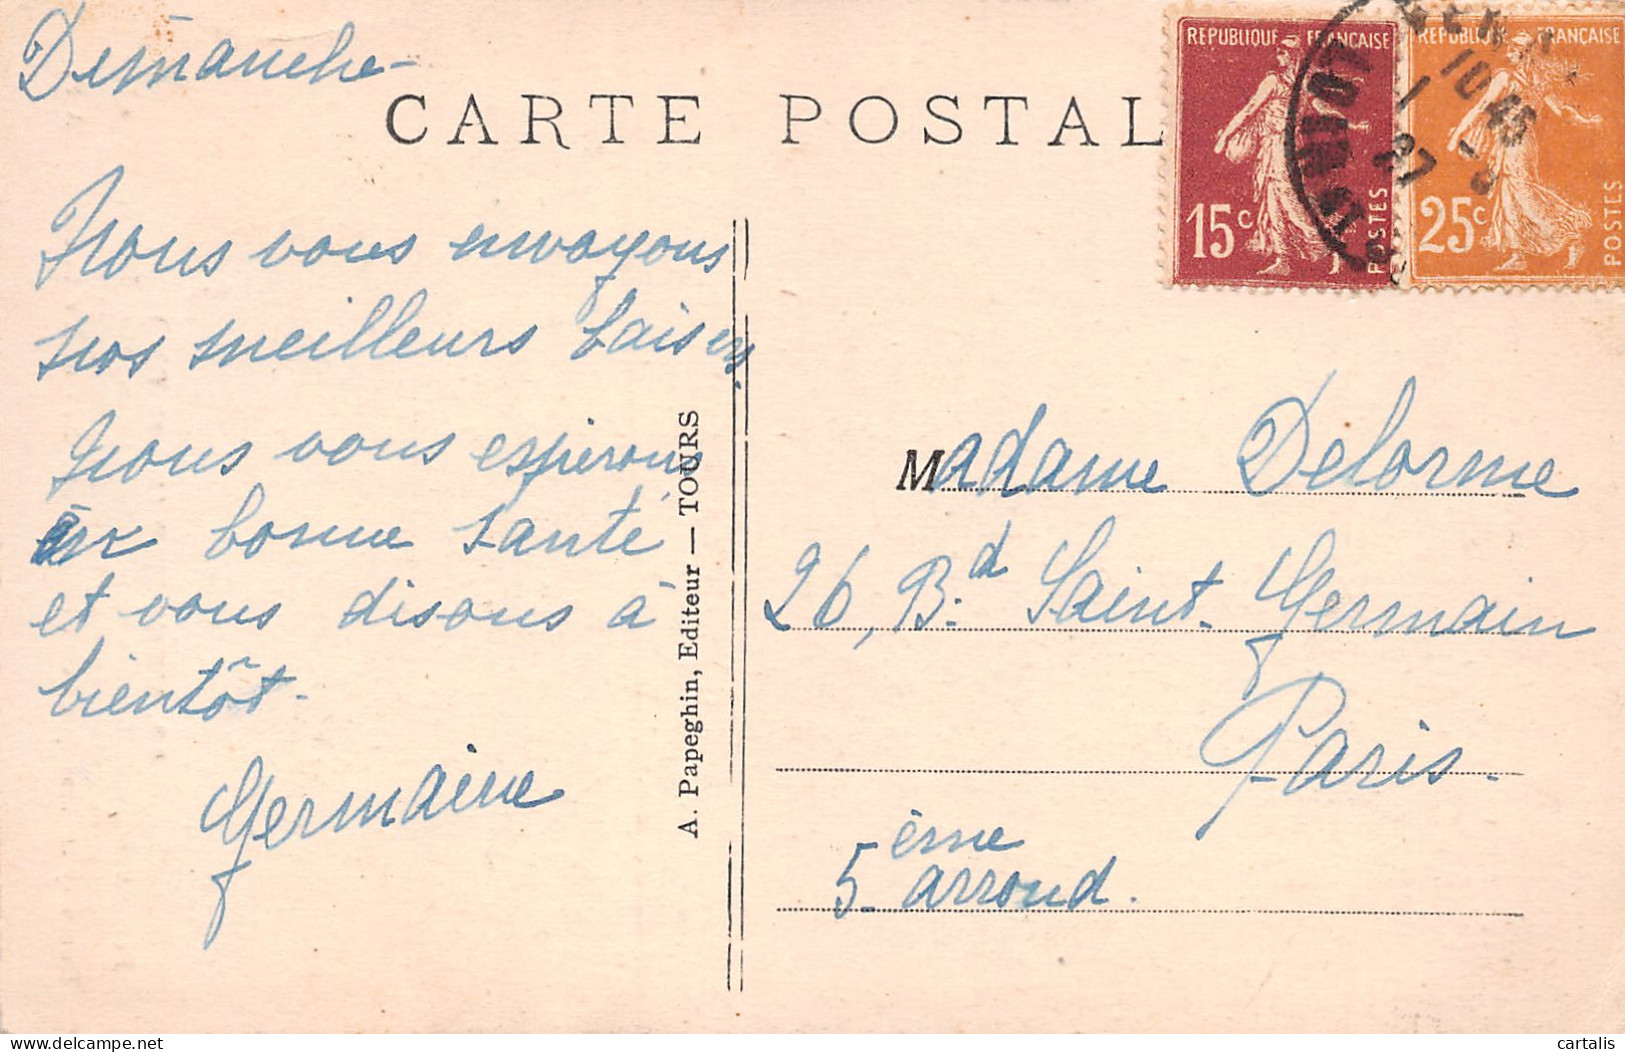 Dimanche -
CARTE POSTAL
REPUBLIQUE FRANÇAISE
15c
POSTES
REPUBLIQUE FRANÇAISE
25c
POSTES
10 45
1 - 9
27
Nous vous envoyons
nos meilleurs baisers.
Nous vous espérons
en bonne santé
et vous disons à
bientôt -
Germaine
A. Papeghin, Editeur — TOURS
Madame Delorme
26, Bd Saint-Germain
Paris -
5ème arrond.
cartalis
delcampe.net